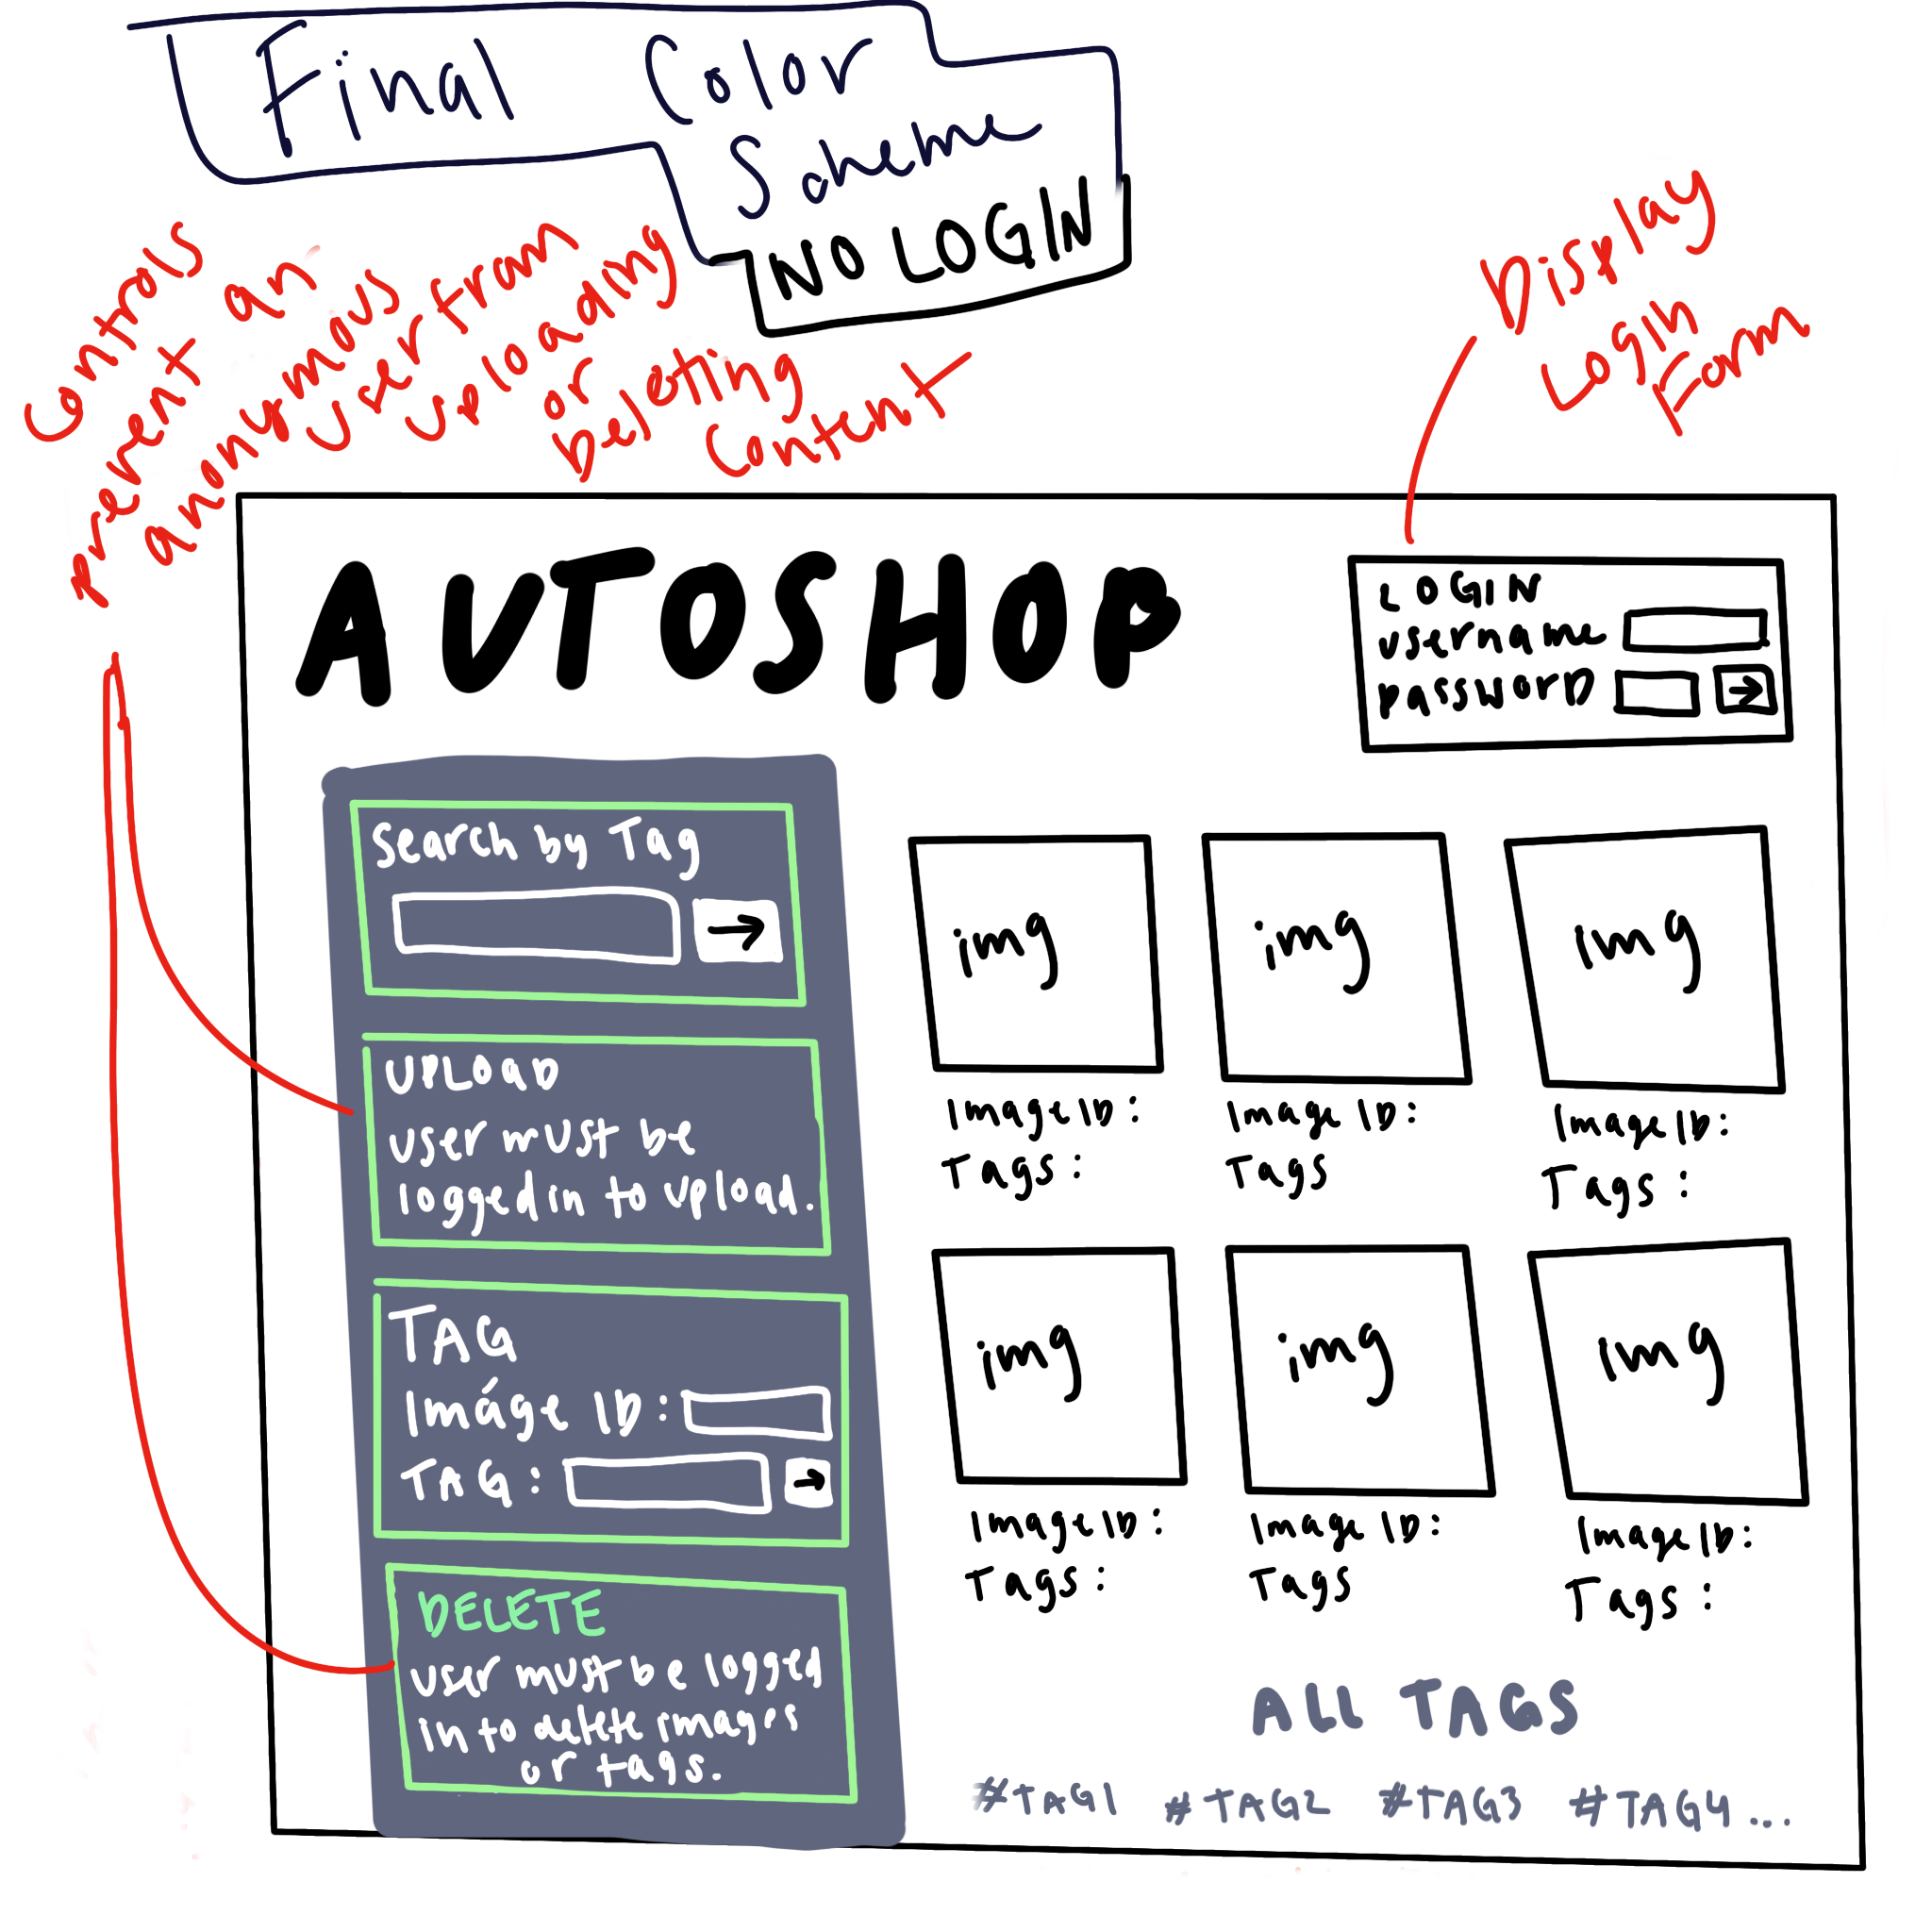 Final Color
Scheme
NO LOGIN
Controls
prevent an
anonymous
user from
uploading
or
Deleting
Content
Display
Login
Form
AUTOSHOP
LOGIN
username
password →
Search by Tag
→
UPLOAD
user must be
logged in to upload.
TAG
Image ID:
TAG: →
DELETE
user must be logged
in to delete images
or tags.
img img img
Image ID: Image ID: Image ID:
Tags: Tags Tags:
img img img
Image ID: Image ID: Image ID:
Tags: Tags Tags:
ALL TAGS
#TAG1 #TAG2 #TAG3 #TAG4...